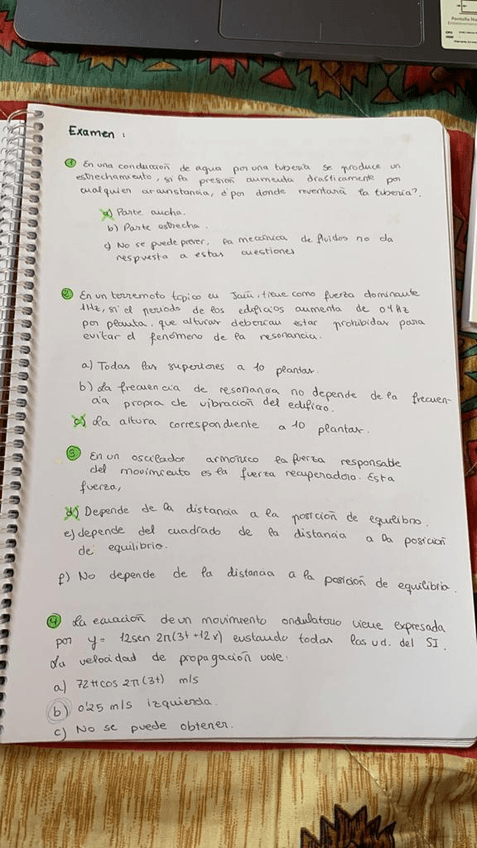 Examen :
1 En una conducción de agua por una tubería se produce un
estrechamiento, si la presión aumenta drásticamente por
cualquier circunstancia, ¿por donde reventaría la tubería?.
a) Parte ancha.
b) Parte estrecha.
c) No se puede prever, la mecánica de fluidos no da
respuesta a estas cuestiones
2 En un terremoto típico en Jaén, tiene como fuerza dominante
1Hz, si el periodo de los edificios aumenta de 0'1Hz
por planta, que alturas deberían estar prohibidas para
evitar el fenómeno de la resonancia.
a) Todas las superiores a 10 plantas.
b) La frecuencia de resonancia no depende de la frecuen-
cia propia de vibración del edificio.
c) La altura correspondiente a 10 plantas.
3 En un oscilador armónico la fuerza responsable
del movimiento es la fuerza recuperadora. Esta
fuerza,
d) Depende de la distancia a la posición de equilibrio.
e) depende del cuadrado de la distancia a la posición
de equilibrio.
f) No depende de la distancia a la posición de equilibrio.
4 La ecuación de un movimiento ondulatorio viene expresada
por y= 12sen 2π(3t+12x) estando todas las ud. del SI.
La velocidad de propagación vale.
a) 72πcos 2π(3t) m/s
b) 0'25 m/s izquierda.
c) No se puede obtener.